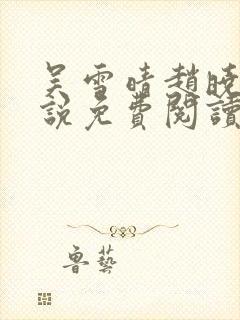 吴雪晴趙曉
說免費閱讀
魯藝